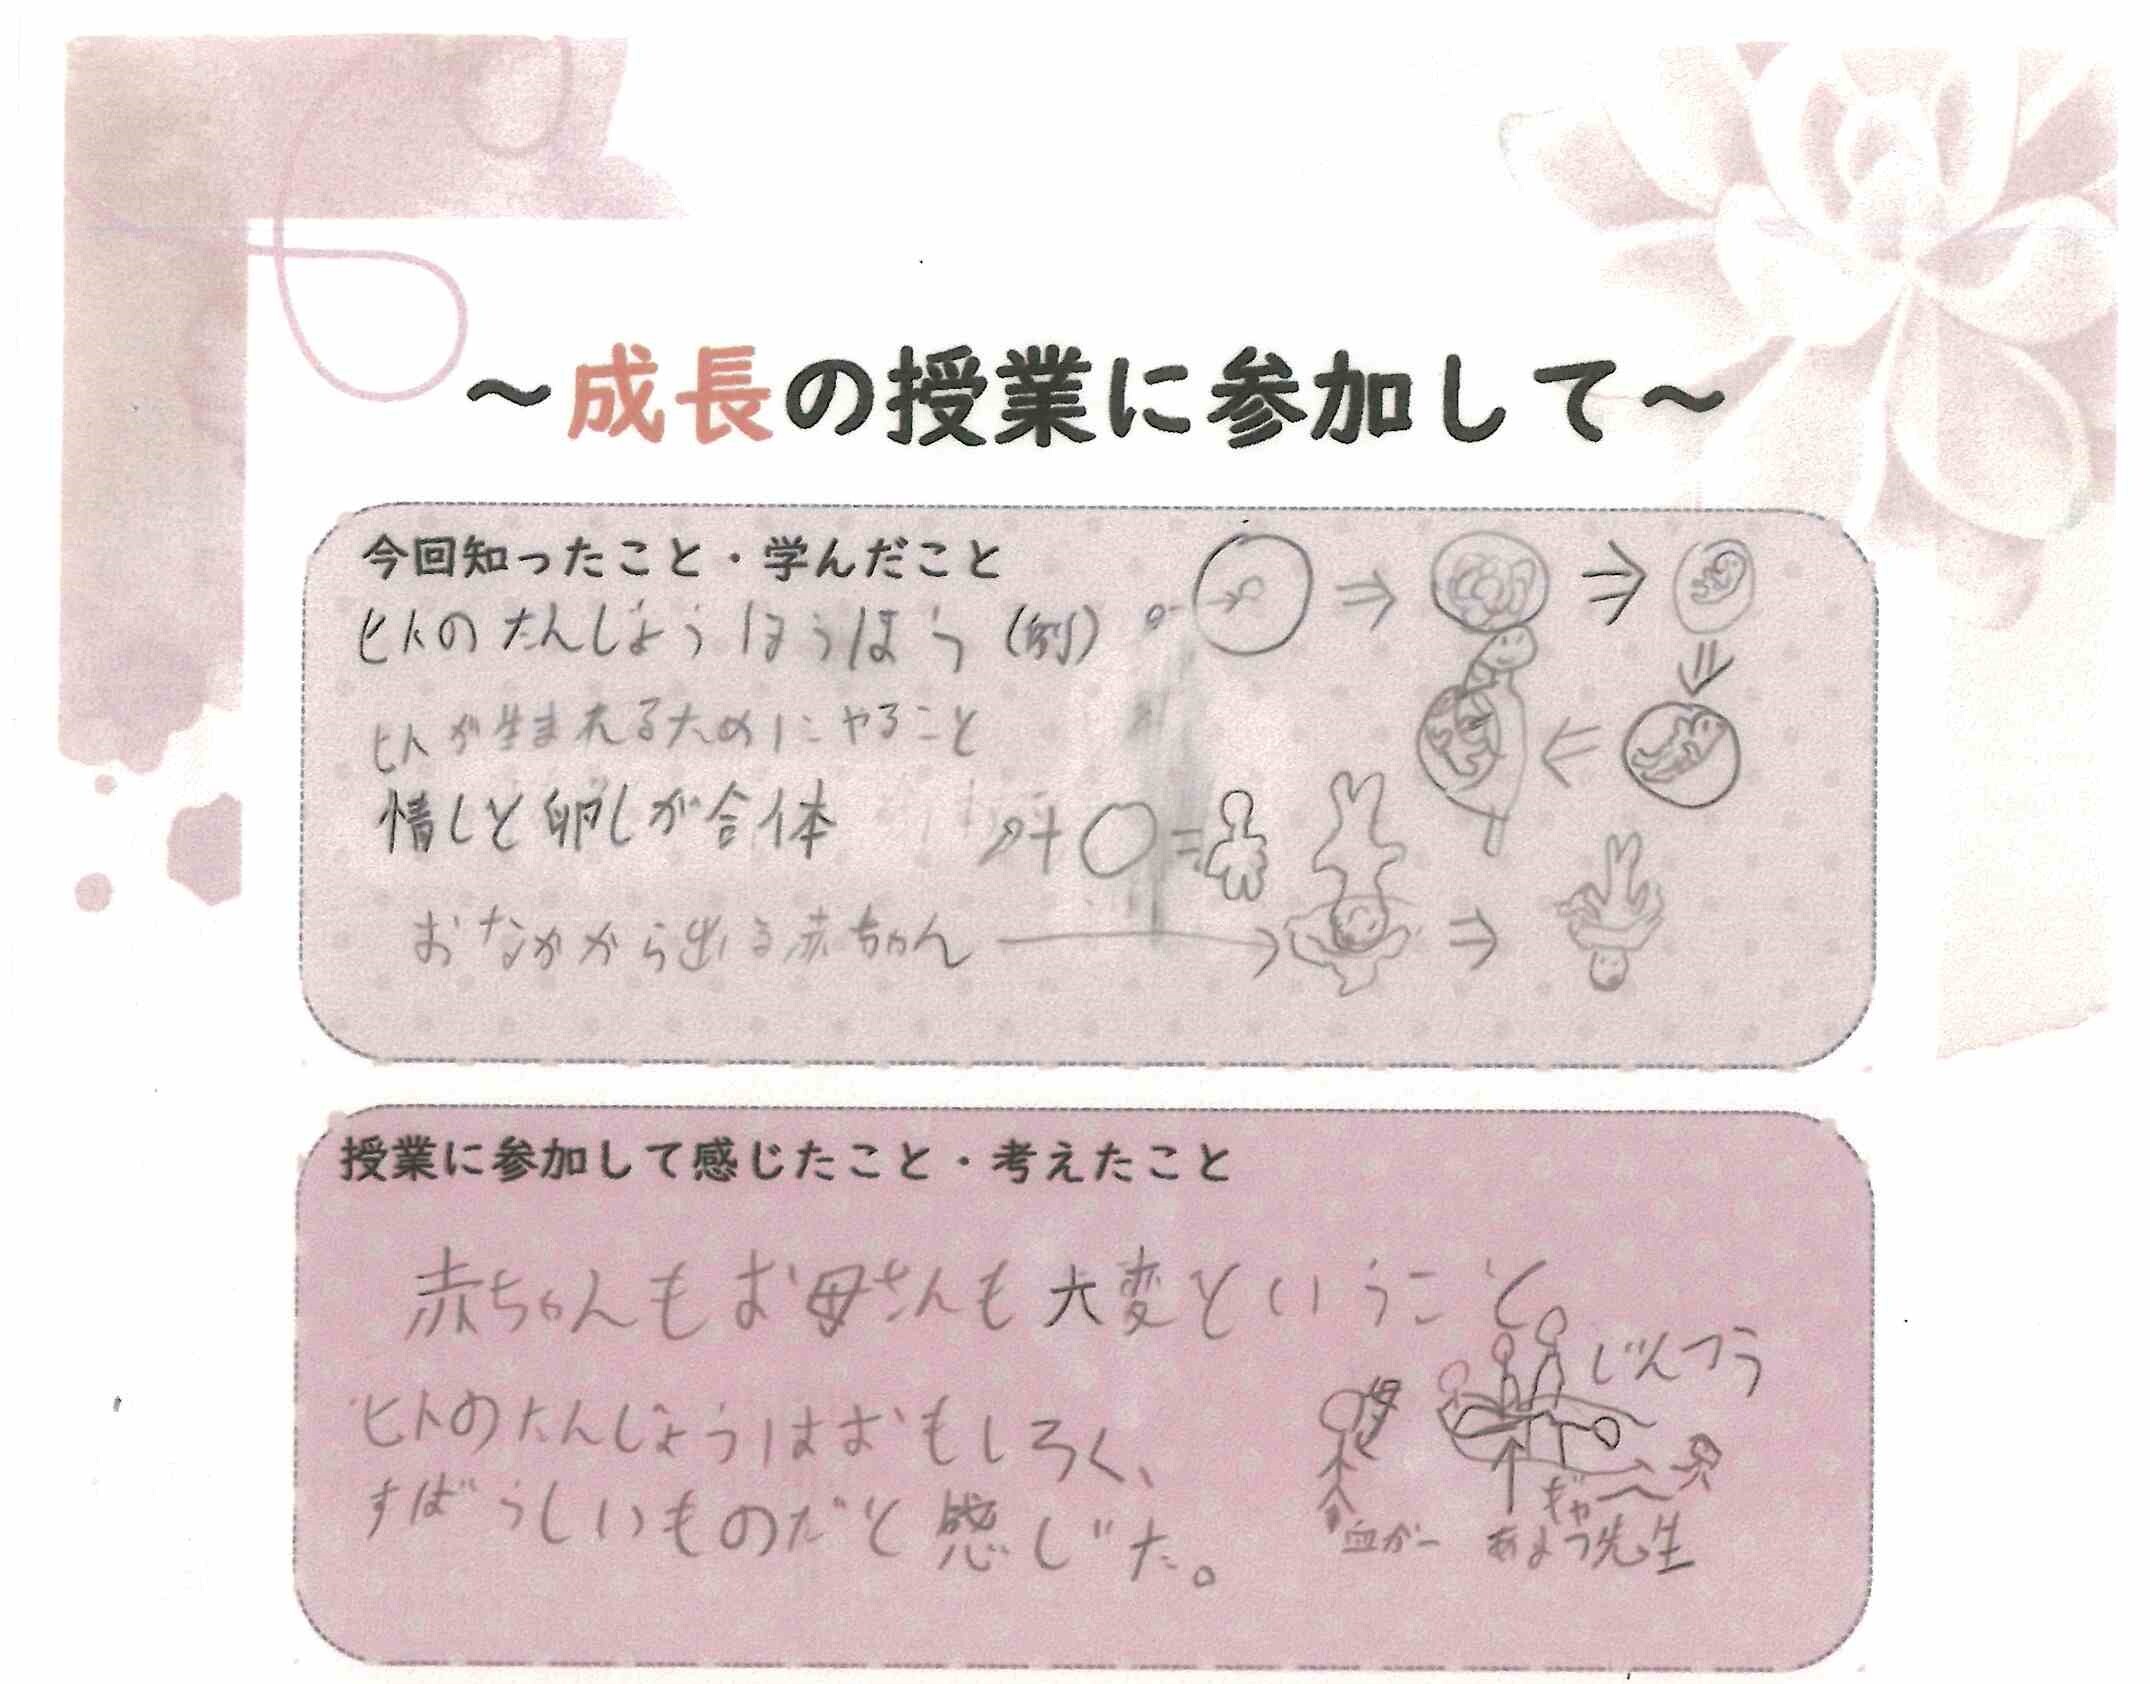 ～成長の授業に参加して～
今回知ったこと・学んだこと
ヒトのたんじょうほうほう(例)
ヒトが生まれるためにやること
情しと卵しが合体
+ =
おなかから出る赤ちゃん
授業に参加して感じたこと・考えたこと
赤ちゃんもお母さんも大変ということ
じんつう
ヒトのたんじょうはおもしろく、
すばらしいものだと感じた。
母
ギャー
血がー
先生